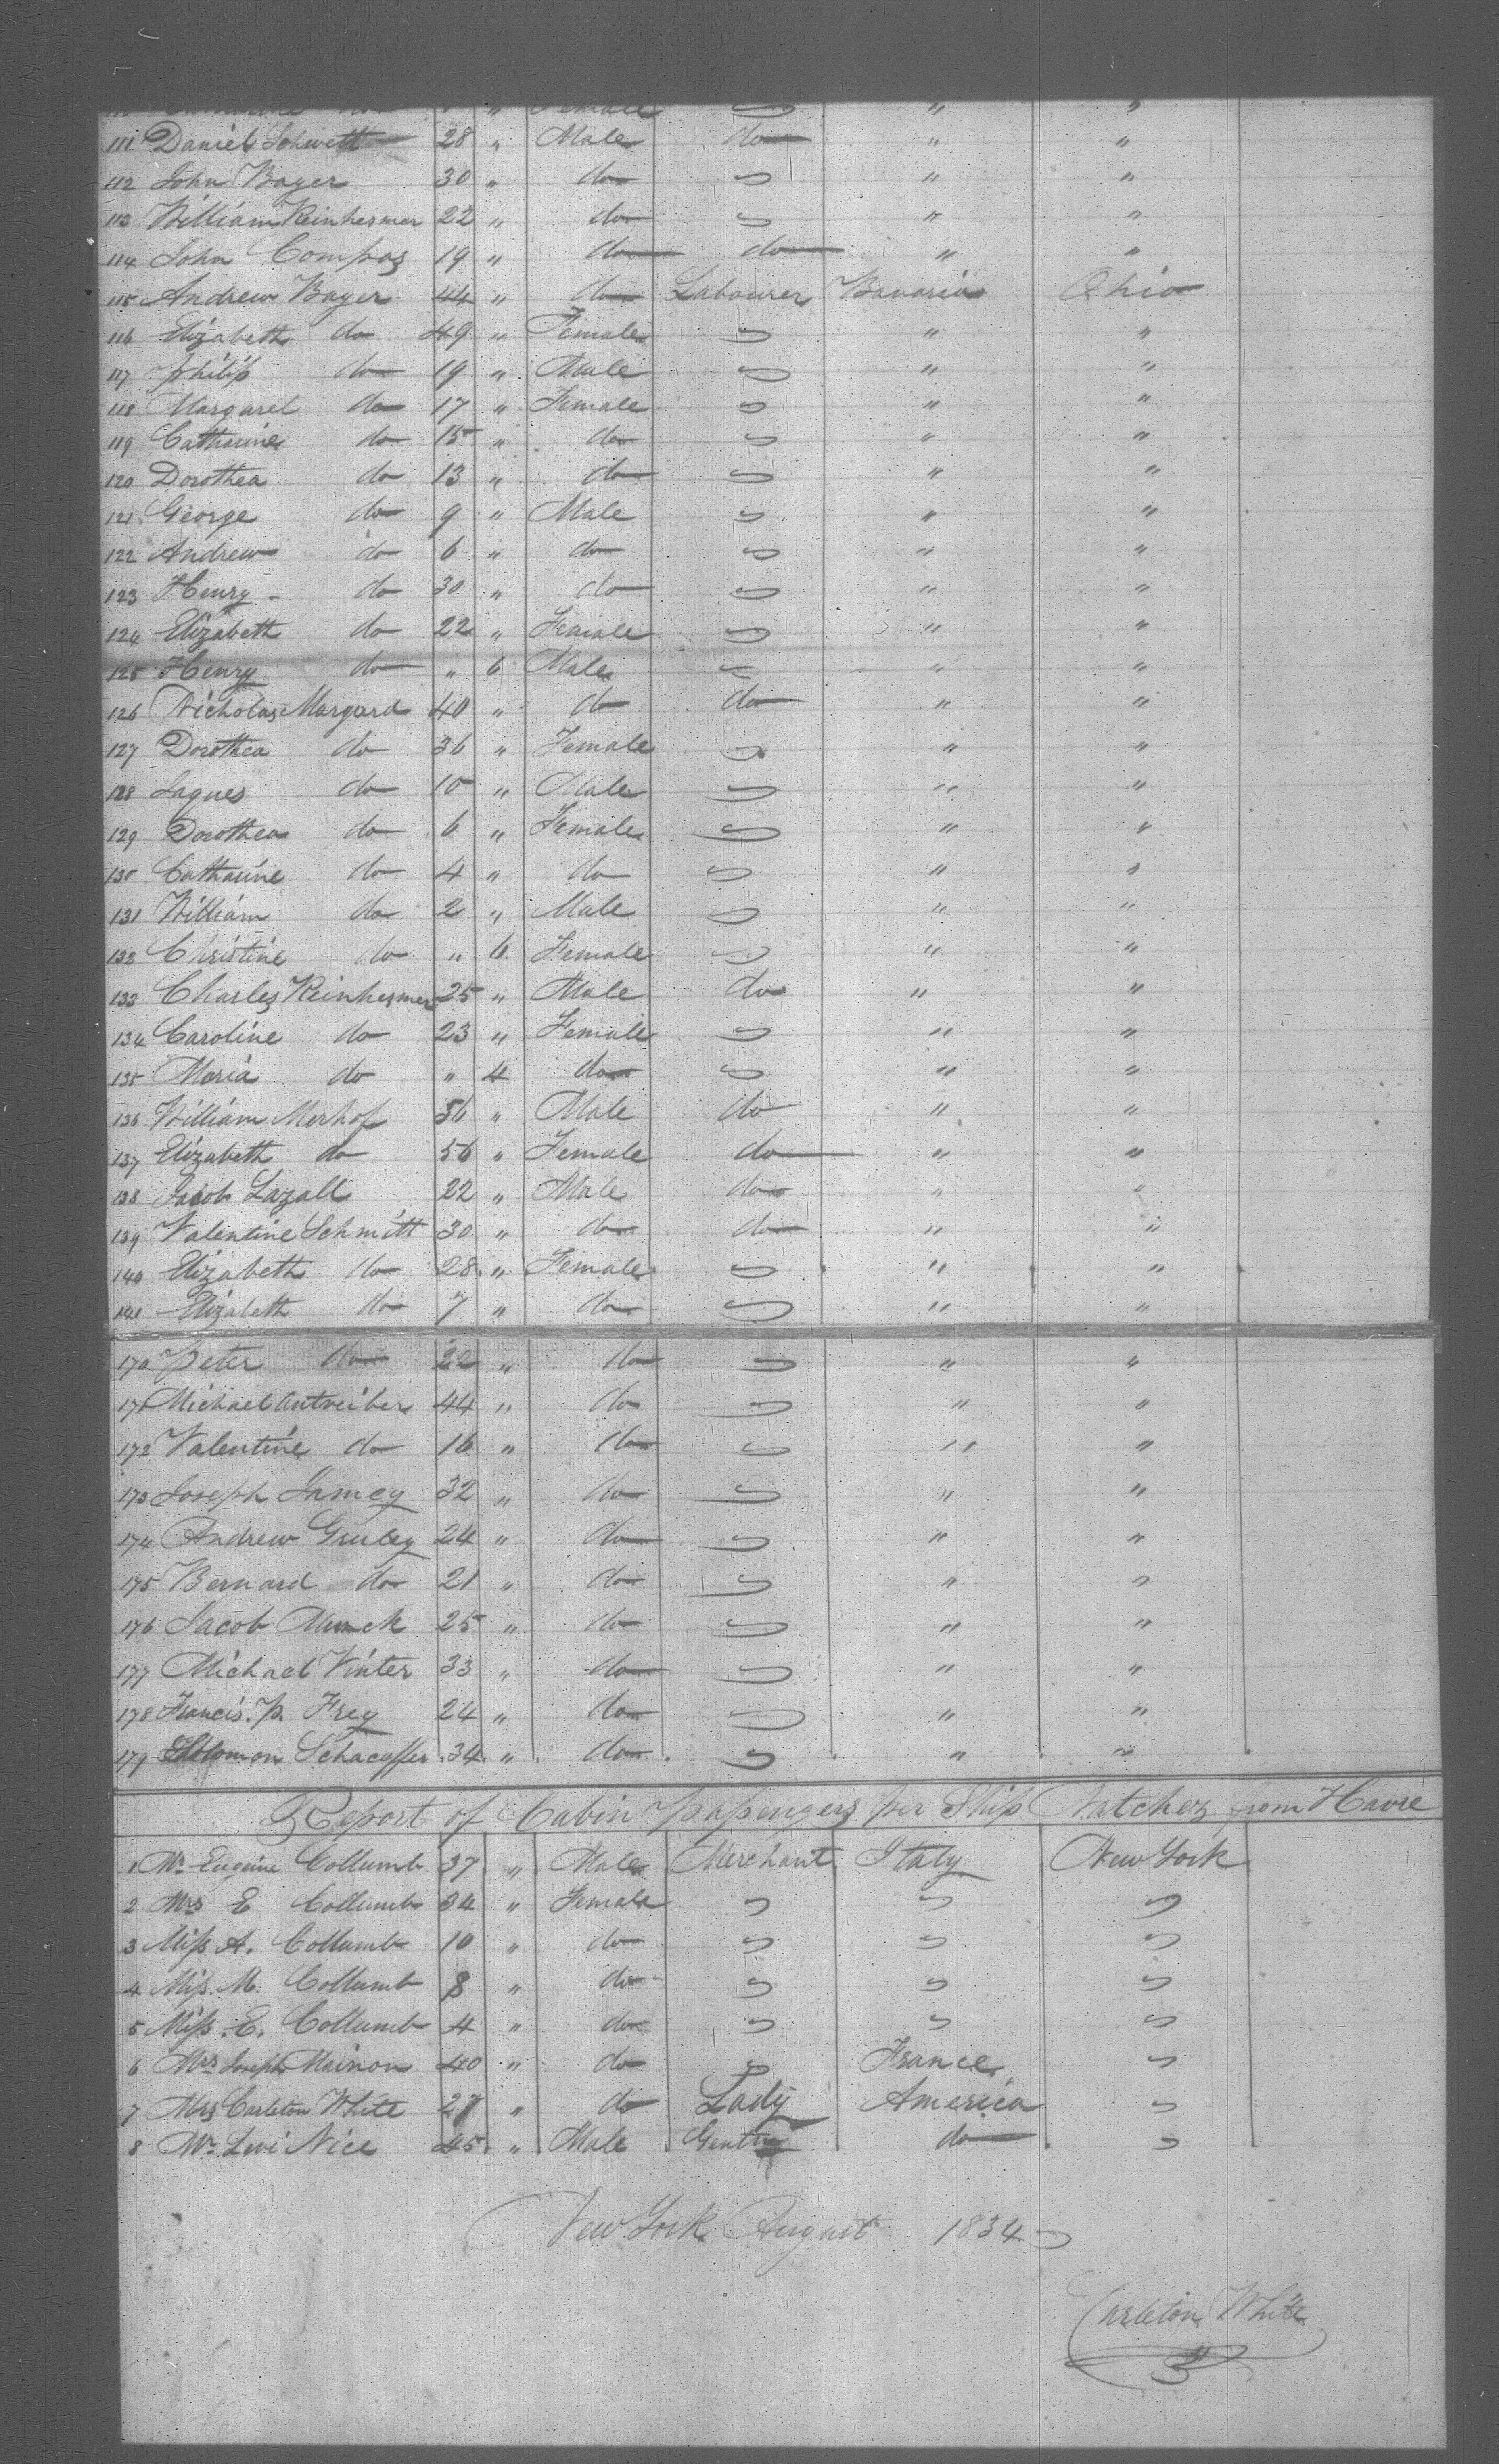 " Female " "
111 Daniel Schwett 28 " Male do " "
112 John Bayer 30 " do " "
113 William Reinhesmer 22 " do " "
114 John Compas 19 " do do " "
115 Andrew Bayer 44 " do Labourer Bavaria Ohio
116 Elizabeth do 49 " Female " "
117 Philip do 19 " Male " "
118 Margaret do 17 " Female " "
119 Catharine do 15 " do " "
120 Dorothea do 13 " do " "
121 George do 9 " Male " "
122 Andrew do 6 " do " "
123 Henry - do 30 " do " "
124 Elizabeth do 22 " Female " "
125 Henry do " 6 Male " "
126 Nicholas Margard 40 " do do " "
127 Dorothea do 36 " Female " "
128 Jaques do 10 " Male " "
129 Dorothea do 6 " Female " "
130 Catharine do 4 " do " "
131 William do 2 " Male " "
132 Christine do " 6 Female " "
133 Charles Reinhesmer 25 " Male do " "
134 Caroline do 23 " Female " "
135 Maria do " 4 do " "
136 William Merhof 56 " Male do " "
137 Elizabeth do 56 " Female do " "
138 Jacob Lazall 22 " Male do " "
139 Valentine Schmitt 30 " do do " "
140 Elizabeth do 28 " Female " "
141 Elizabeth do 7 " do " "
170 Peter do 22 " do " "
171 Michael Antreiber 44 " do " "
172 Valentine do 16 " do " "
173 Joseph Jamey 32 " do " "
174 Andrew Gruley 24 " do " "
175 Bernard do 21 " do " "
176 Jacob Munck 25 " do " "
177 Michael Vinter 33 " do " "
178 Francis. P. Frey 24 " do " "
179 Solomon Schaeuffer 34 " do " "
Report of Cabin Passengers per Ship Natchez from Havre
1 Mr Eugeine Collumb 37 " Male Merchant Italy New York
2 Mrs E Collumb 34 " Female
3 Miss A. Collumb 10 " do
4 Miss M. Collumb 8 " do
5 Miss E. Collumb 4 " do
6 Mrs Joseph Mainon 40 " do France
7 Mrs Carleton White 27 " do Lady America
8 Mr Levi Nice 45 " Male do
New York August 1834
Carleton White